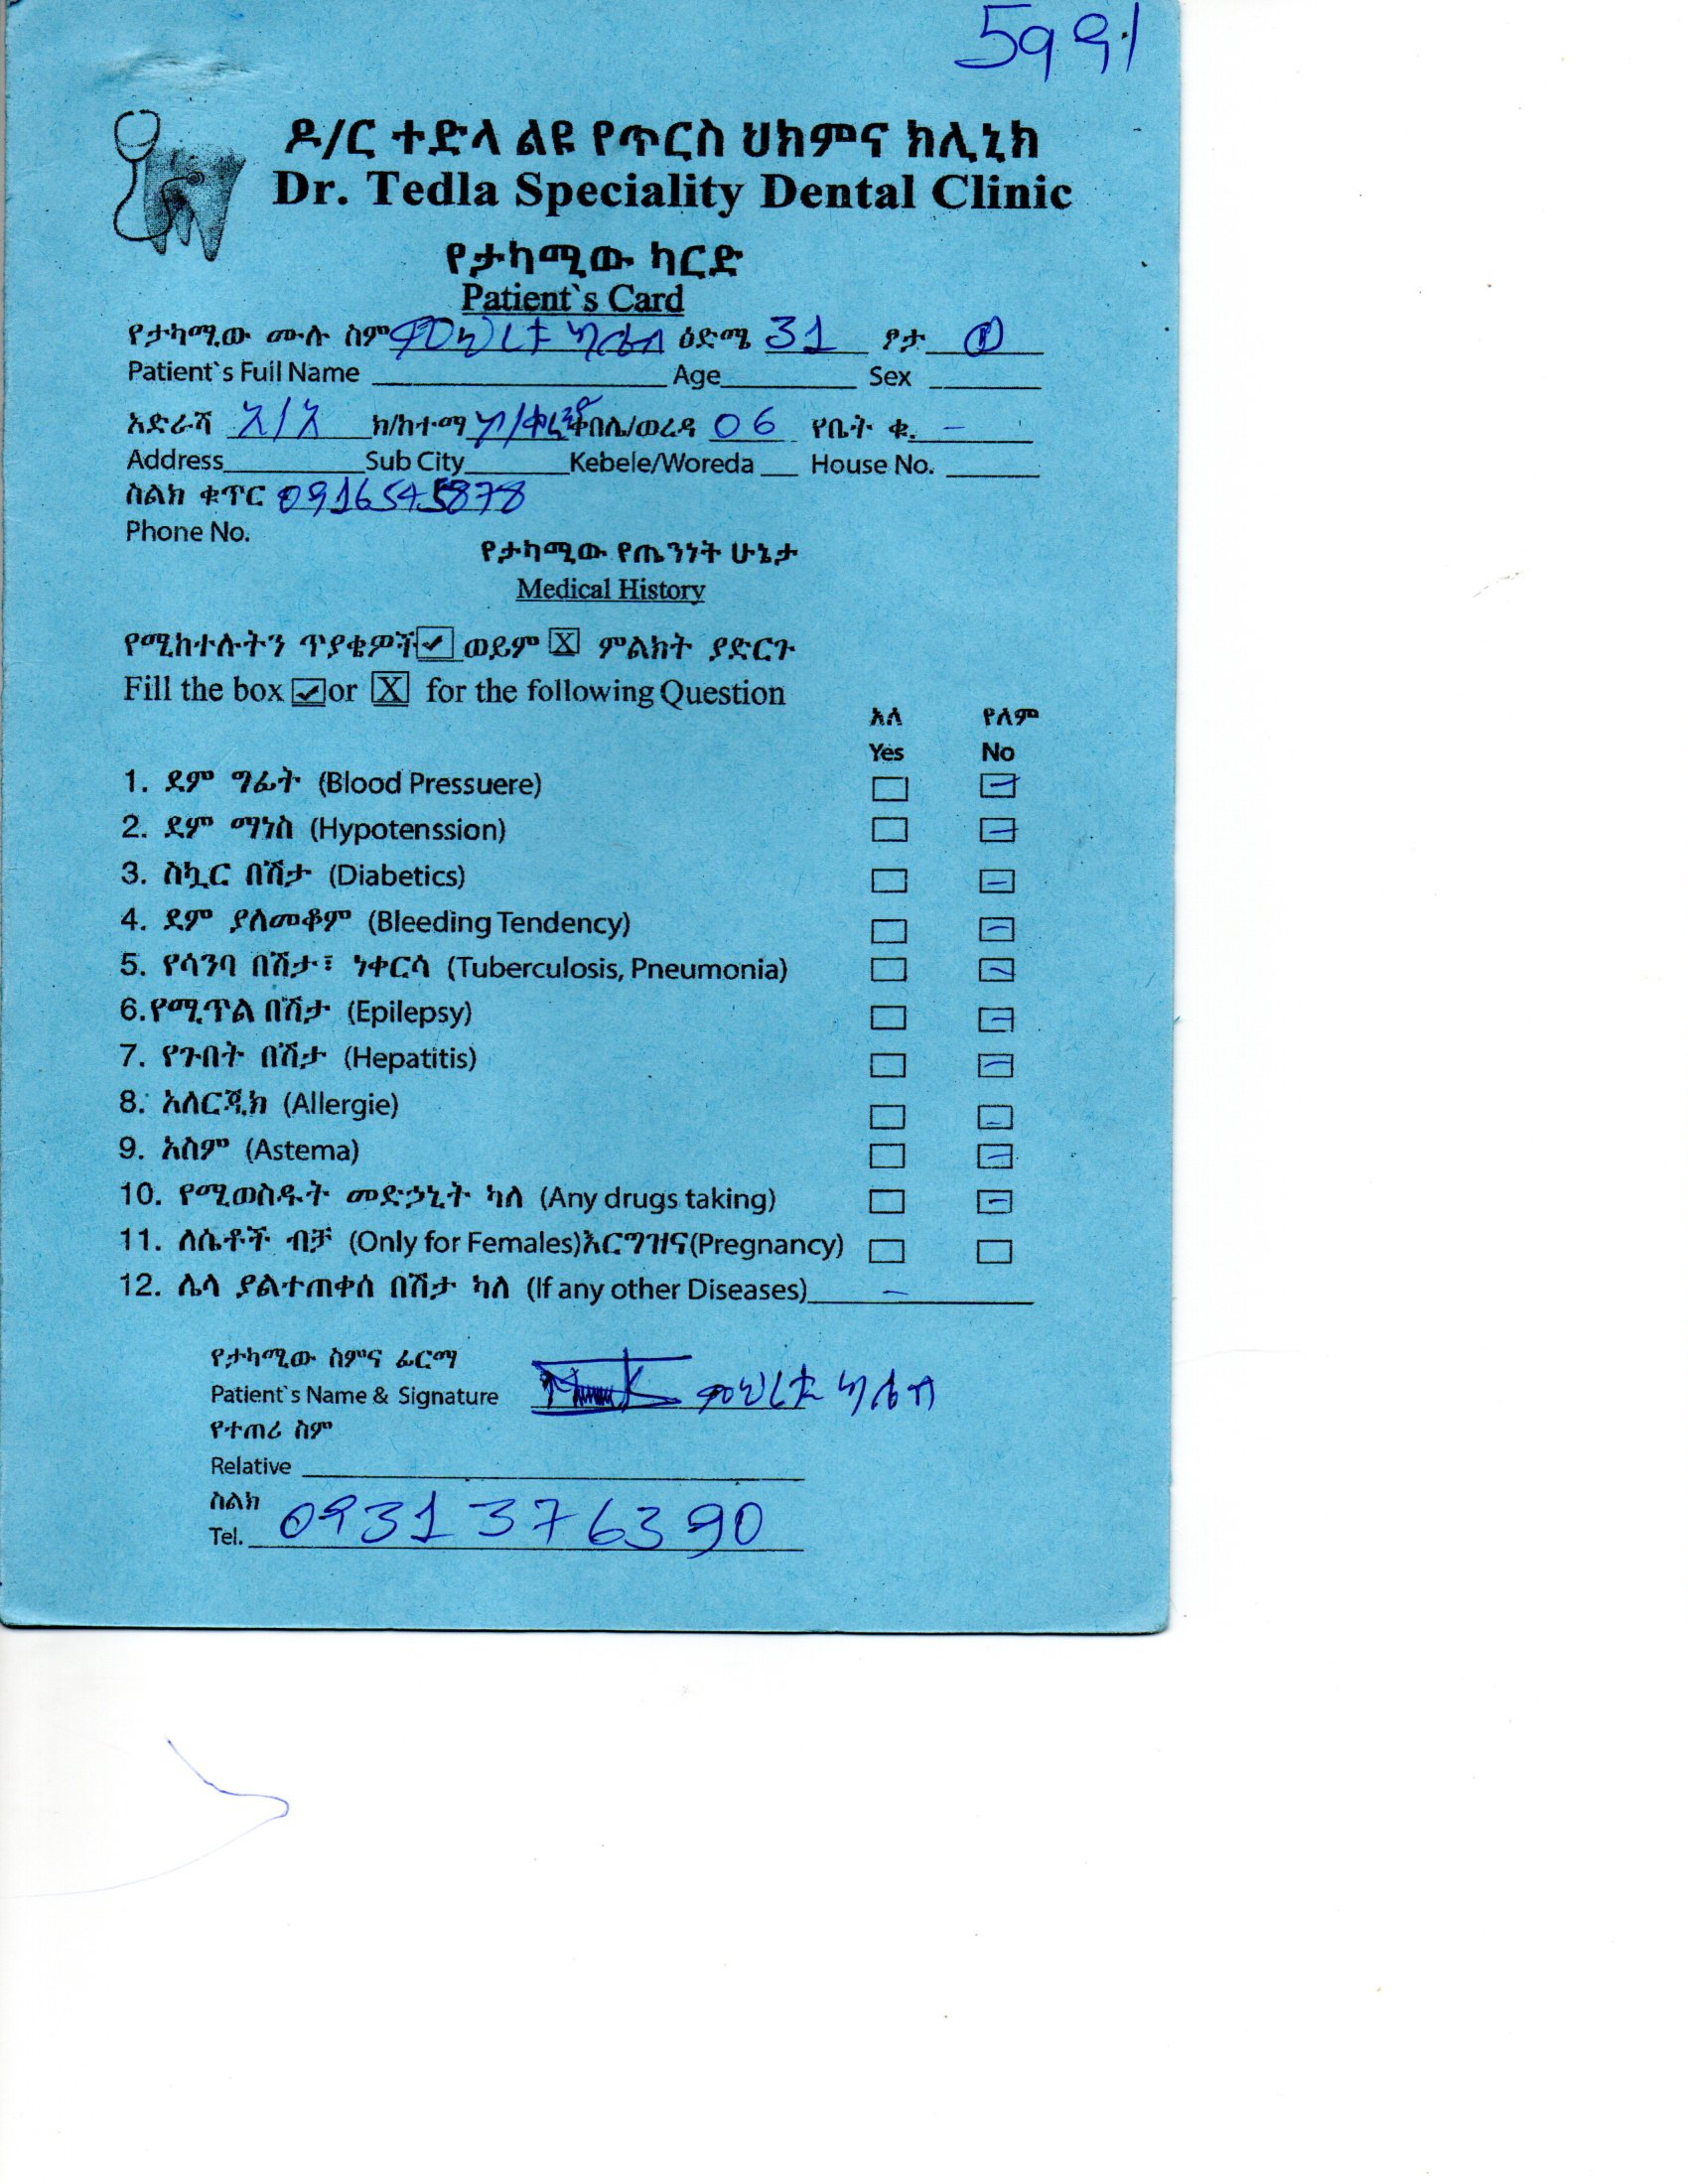 5991
ዶ/ር ተድላ ልዩ የጥርስ ህክምና ክሊኒክ
Dr. Tedla Speciality Dental Clinic
የታካሚው ካርድ
Patient`s Card
የታካሚው ሙሉ ስም ምህረቱ ካሌብ ዕድሜ 31 ፆታ ወ
Patient`s Full Name Age Sex
አድራሻ አ/አ ክ/ከተማ ን/ቀበሌ/ወረዳ 06 የቤት ቁ. -
Address Sub City Kebele/Woreda House No.
ስልክ ቁጥር 0916545878
Phone No.
የታካሚው የጤንነት ሁኔታ
Medical History
የሚከተሉትን ጥያቄዎች ✓ ወይም X ምልክት ያድርጉ
Fill the box ✓ or X for the following Question
አለ የለም
Yes No
1. ደም ግፊት (Blood Pressuere)
2. ደም ማነስ (Hypotenssion)
3. ስኳር በሽታ (Diabetics)
4. ደም ያለመቆም (Bleeding Tendency)
5. የሳንባ በሽታ፣ ነቀርሳ (Tuberculosis, Pneumonia)
6.የሚጥል በሽታ (Epilepsy)
7. የጉበት በሽታ (Hepatitis)
8. አለርጂክ (Allergie)
9. አስም (Astema)
10. የሚወስዱት መድኃኒት ካለ (Any drugs taking)
11. ለሴቶች ብቻ (Only for Females)እርግዝና(Pregnancy)
12. ሌላ ያልተጠቀሰ በሽታ ካለ (If any other Diseases) -
የታካሚው ስምና ፊርማ
Patient`s Name & Signature ምህረቱ ካሌብ
የተጠሪ ስም
Relative
ስልክ
Tel. 0931376390